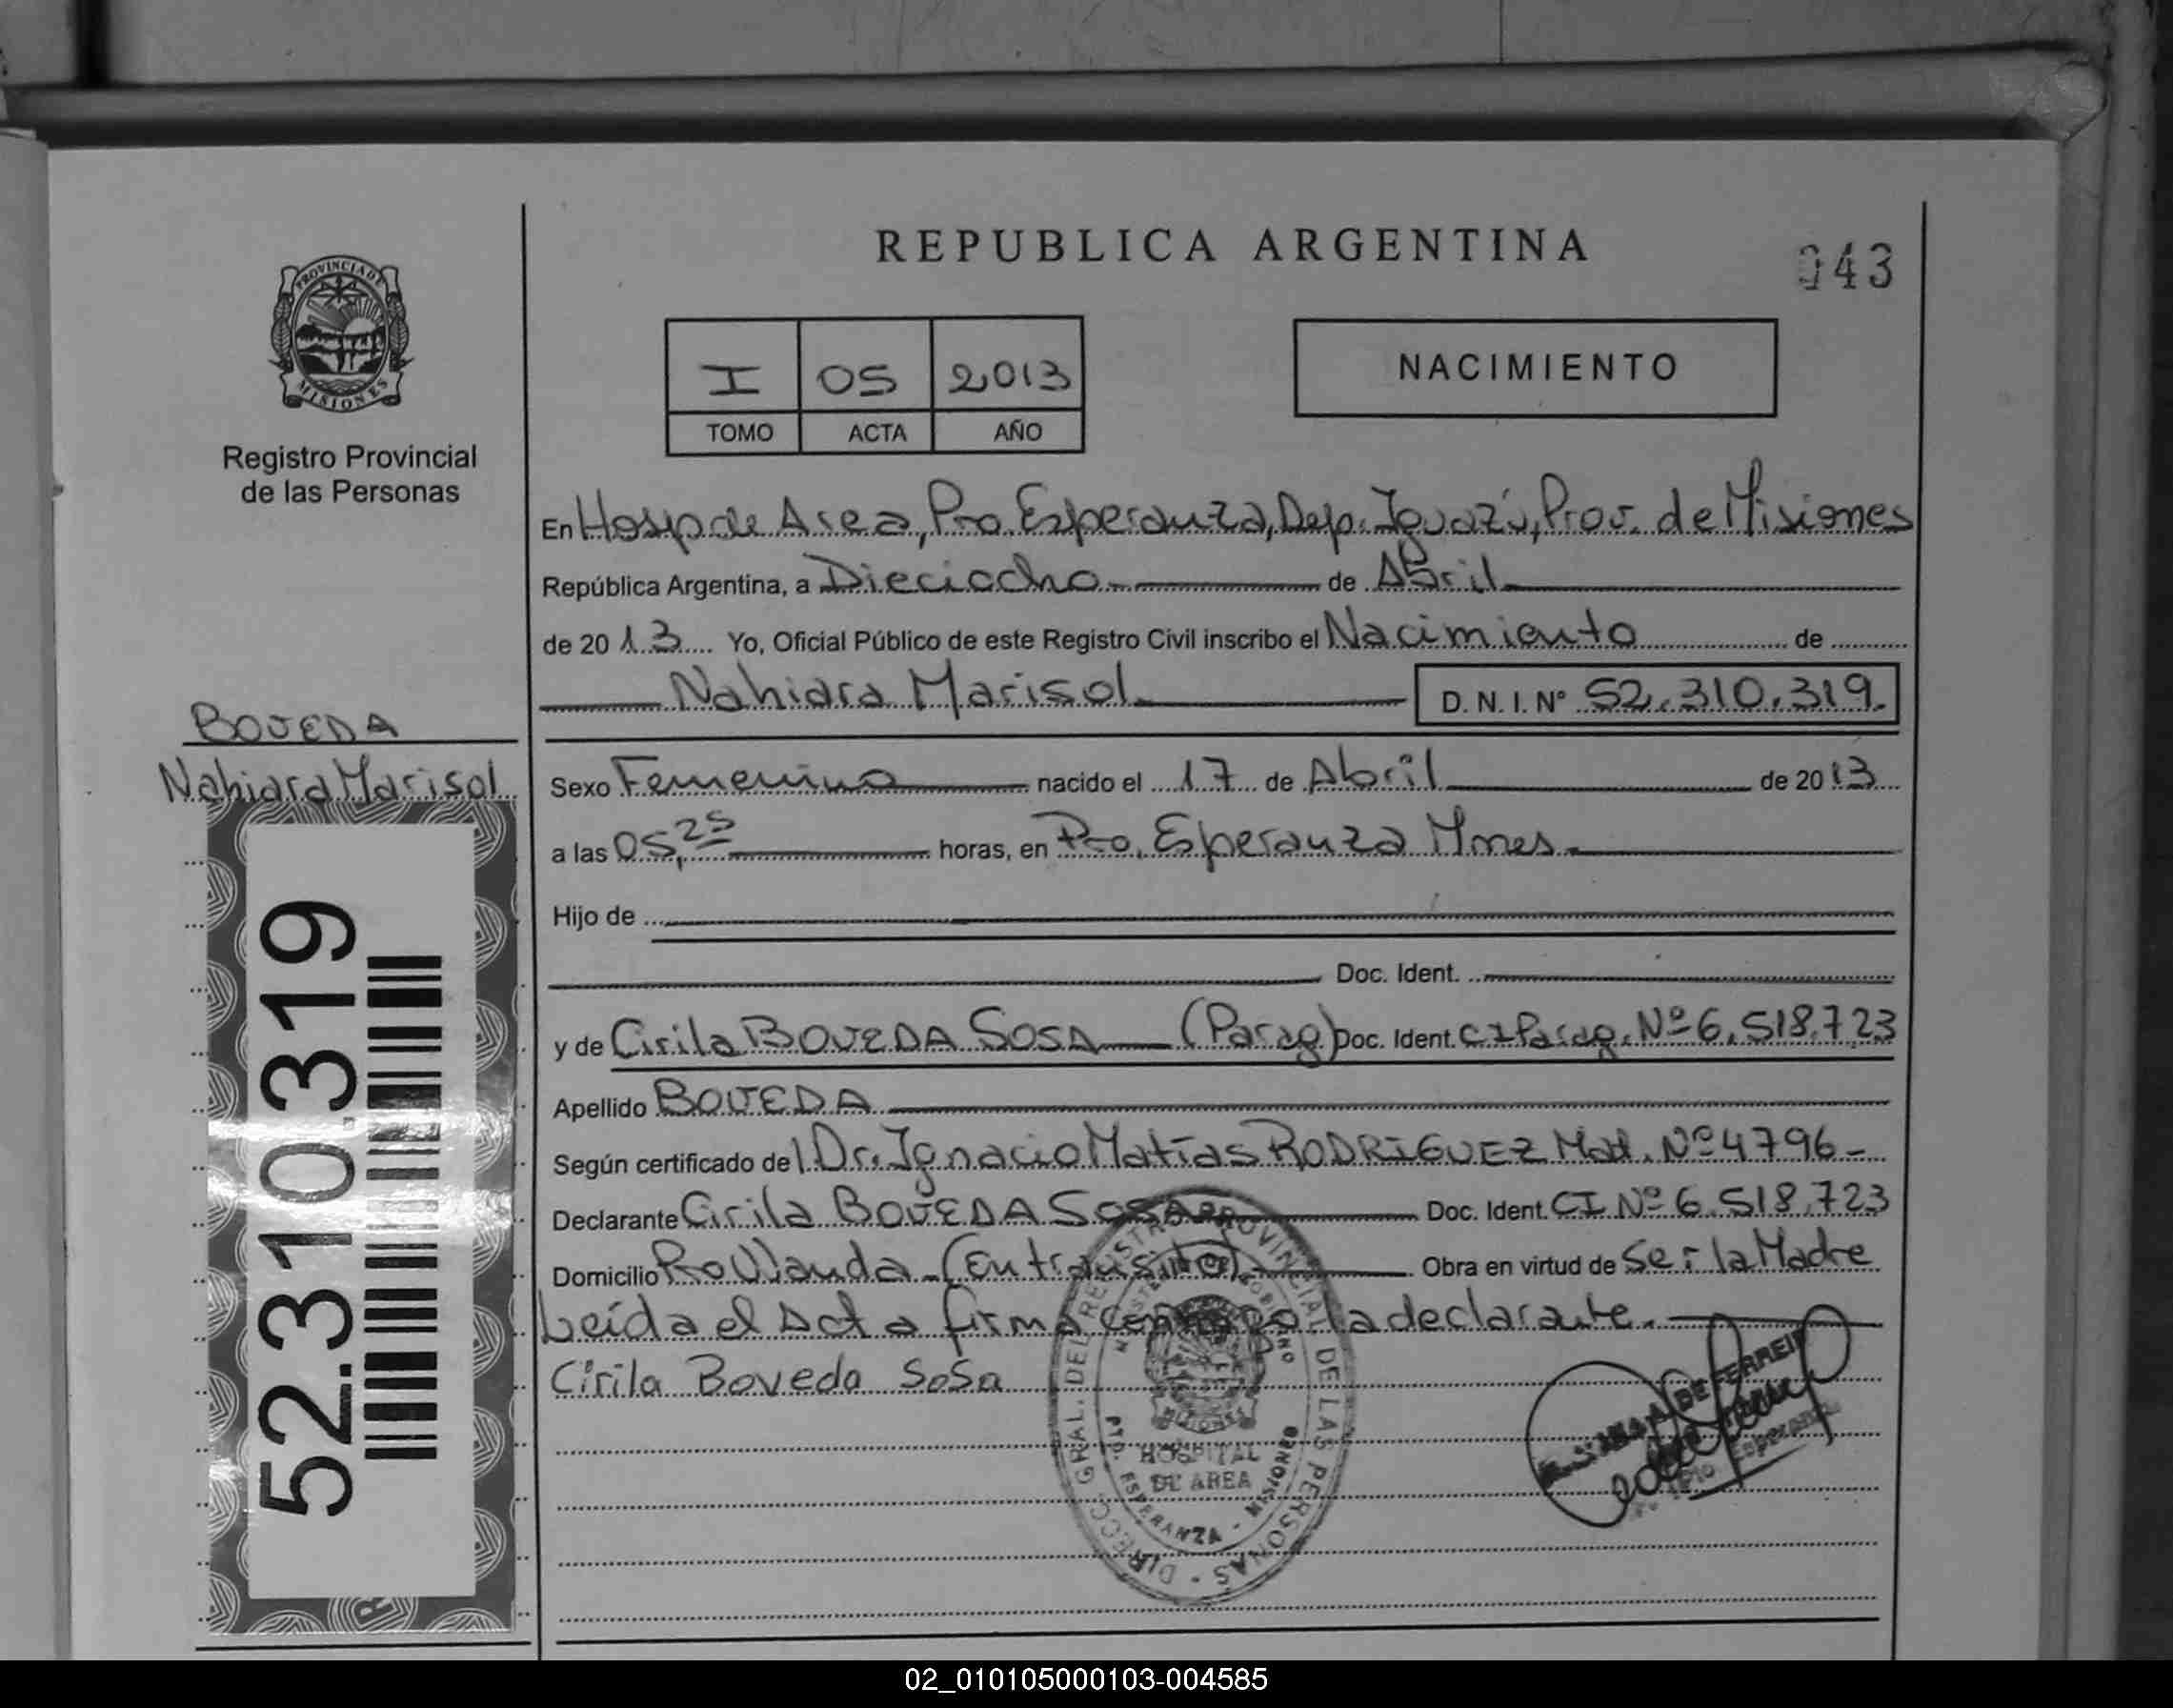 REPUBLICA ARGENTINA
043
PROVINCIA DE
MISIONES
Registro Provincial
de las Personas
I 05 2013
TOMO ACTA AÑO
NACIMIENTO
En Hosp de Area, Pto. Esperanza, Dep. Iguazú, Prov. de Misiones
República Argentina, a Dieciocho de Abril
de 2013 Yo, Oficial Público de este Registro Civil inscribo el Nacimiento de
Nahiara Marisol D. N. I. Nº 52.310.319.
BOVEDA
Nahiara Marisol
52.310.319
Sexo Femenino nacido el 17 de Abril de 2013
a las 05,25 horas, en Pto. Esperanza Mnes.
Hijo de
Doc. Ident.
y de Cirila BOVEDA SOSA (Parag) Doc. Ident. CI Parag. Nº 6.518.723
Apellido BOVEDA
Según certificado del Dr. Ignacio Matías RODRIGUEZ Mat. Nº 4796-
Declarante Cirila BOVEDA SOSA Doc. Ident. CI Nº 6.518.723
Domicilio (en transito) Obra en virtud de Ser la Madre
Leída el Acta firma conmigo la declarante.
Cirila Boveda Sosa
DIRECC. GRAL. DEL REGISTRO PROVINCIAL DE LAS PERSONAS
HOSPITAL
DE AREA
PTO. ESPERANZA - MISIONES
DE FERREIR
02_010105000103-004585